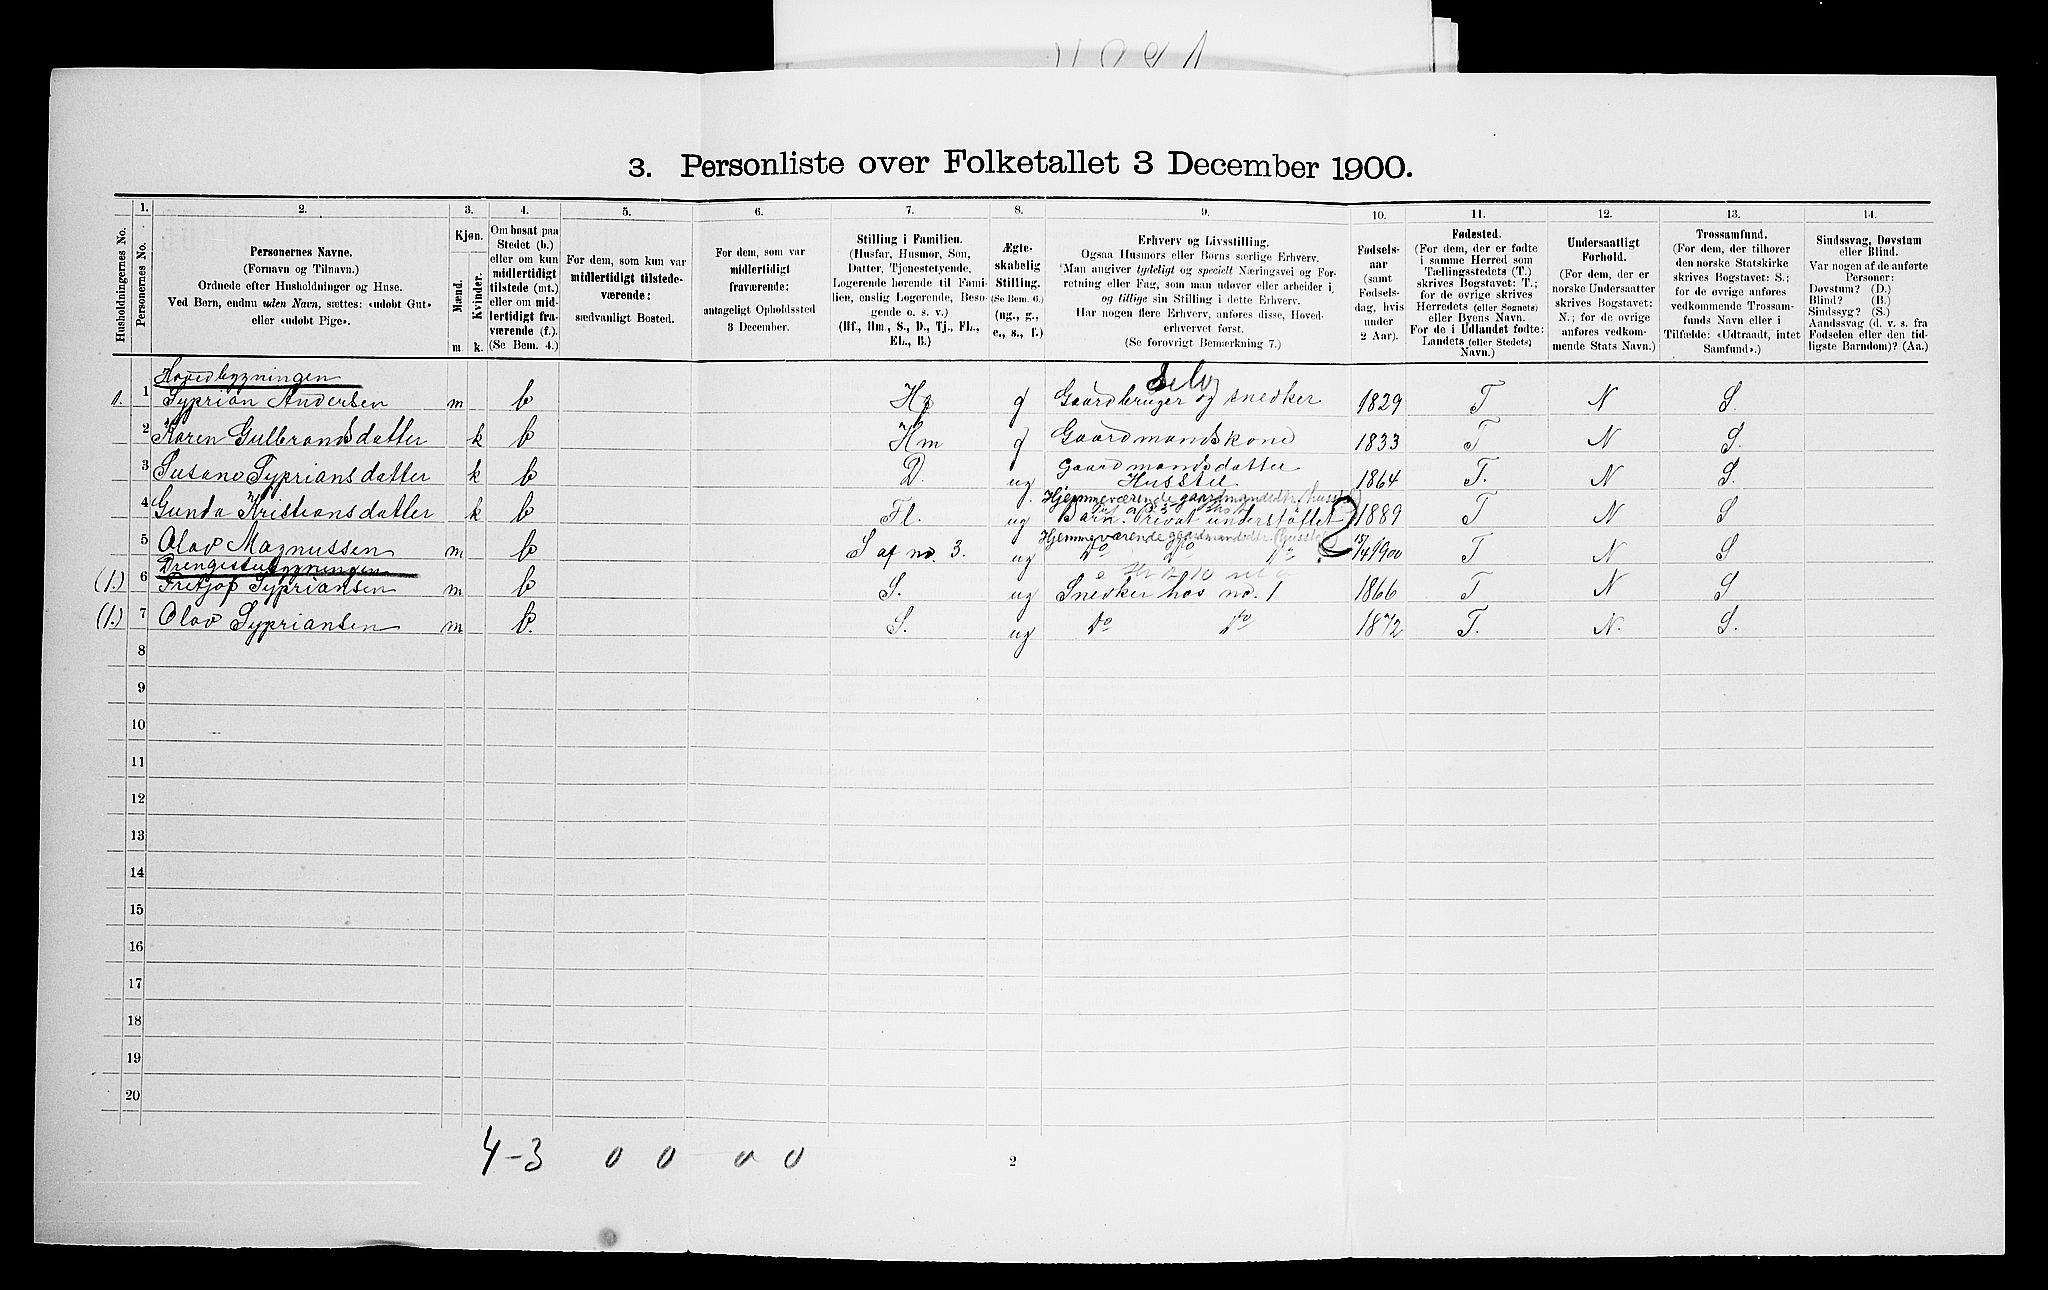 3. Personliste over Folketallet 3 December 1900.
1. 2. 3. 4. 5. 6. 7. 8. 9. 10. 11. 12. 13. 14.
Husholdningernes No.
Personernes No.
Personernes Navne.
(Fornavn og Tilnavn.)
Ordnede efter Husholdninger og Huse.
Ved Børn, endnu uden Navn, sættes: «udobt Gut»
eller «udobt Pige».
Kjøn.
Mænd.
Kvinder.
m k.
Om bosat paa
Stedet (b.)
eller om kun
midlertidigt
tilstede (mt.)
eller om mid-
lertidigt fra-
værende (f.).
(Se Bem. 4.)
For dem, som kun var
midlertidigt tilstede-
værende:
sædvanligt Bosted.
For dem, som var
midlertidigt
fraværende:
antageligt Opholdssted
3 December.
Stilling i Familien.
(Husfar, Husmor, Søn,
Datter, Tjenestetyende,
Logerende hørende til Fami-
lien, enslig Logerende, Beso-
gende o. s. v.)
(Hf., Hm., S., D., Tj., FL.,
EL., B.)
Ægte-
skabelig
Stilling.
(Se Bem. 6.)
(ug., g.,
e., s., f.)
Erhverv og Livsstilling.
Ogsaa Husmors eller Børns særlige Erhverv.
Man angiver tydeligt og specielt Næringsvei og For-
retning eller Fag, som man udover eller arbeider i,
og tillige sin Stilling i dette Erhverv.
Har nogen flere Erhverv, anføres disse, Hoved-
erhvervet først.
(Se forøvrigt Bemærkning 7.)
Fødsels-
aar
(samt
Fødsels-
dag, hvis
under
2 Aar).
Fødested.
(For dem, der er fødte
i samme Herred som
Tællingsstedets (T.)
skrives Bogstavet: T.;
for de øvrige skrives
Herredets (eller Sognets)
eller Byens Navn.
For de i Udlandet fødte:
Landets (eller Stedets)
Navn.)
Undersaatligt
Forhold.
(For dem, der er
norske Undersaatter
skrives Bogstavet:
N.; for de øvrige
anføres vedkom-
mende Stats Navn.)
Trossamfund.
(For dem, der tilhører
den norske Statskirke
skrives Bogstavet: S.;
for de øvrige anføres
vedkommende Trossam-
funds Navn eller i
Tilfælde: «Udtraadt, intet
Samfund».)
Sindssvag, Døvstum
eller Blind.
Var nogen af de anførte
Personer:
Døvstum? (D.)
Blind? (B.)
Sindssyg? (S.)
Aandssvag (d. v. s. fra
Fødselen eller den tid-
ligste Barndom)? (Aa.)
Hovedbygningen
Selv
1. 1 Syprian Andersen m b Hf g Gaardbruger og snedker 1829 T N S.
2 Karen Gulbrandsdatter k b Hm g Gaardmandskone 1833 T N S.
3 Susane Sypriansdatter k b D. ug Gaardmandsdatter 1864 T. N S.
Husstel
Hjemmeværende gaardmandsdtr. (husstel)
4 Gunda Kristiansdatter k b Fl. ug Barn. Privat understøttet 1889 T N S
Hjemmeværende gaardmandsdtr. (husstel)
5 Olav Magnussen m b S af no. 3. ug do do do 15/4 1900 T N S
Drengestubygningen
(1.) 6 Fritjof Sypriansen m b S. ug Snedker hos no. 1 1866 T N S
(1.) 7 Olav Sypriansen m b. S. ug do do 1872 T. N. S.
8
9
10
11
12
13
14
15
16
17
18
19
20
4-3 0 0 0 0
2